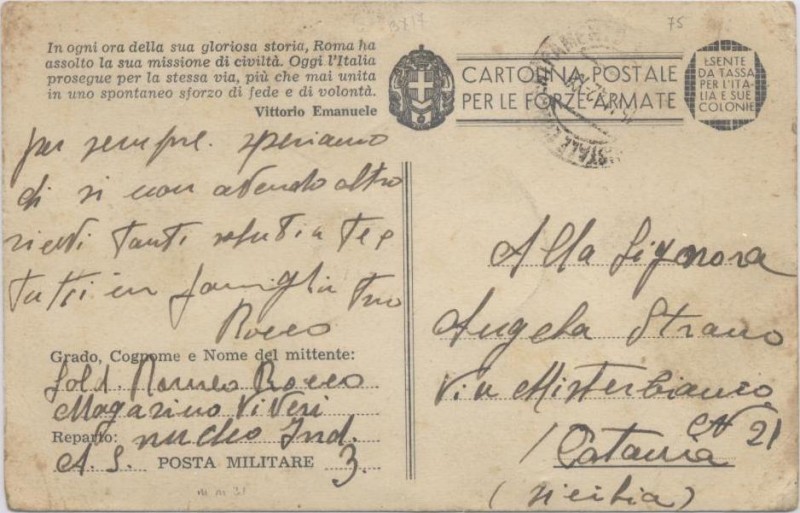 In ogni ora della sua gloriosa storia, Roma ha
assolto la sua missione di civiltà. Oggi l'Italia
prosegue per la stessa via, più che mai unita
in uno spontaneo sforzo di fede e di volontà.
Vittorio Emanuele
CARTOLINA POSTALE
PER LE FORZE ARMATE
ESENTE
DA TASSA
PER L'ITA-
LIA E SUE
COLONIE
75
per sempre. speriamo
di si non avendo altro
ricevi tanti saluti a te e
tutti in famiglia tuo
Rocco
Grado, Cognome e Nome del mittente:
Sold. Romeo Rocco
Magazino Viveri
Reparto: nucleo Ind.
A. S. POSTA MILITARE 3.
Alla Signora
Angela Strano
Via Misterbianco
N 21
Catania
(Sicilia)